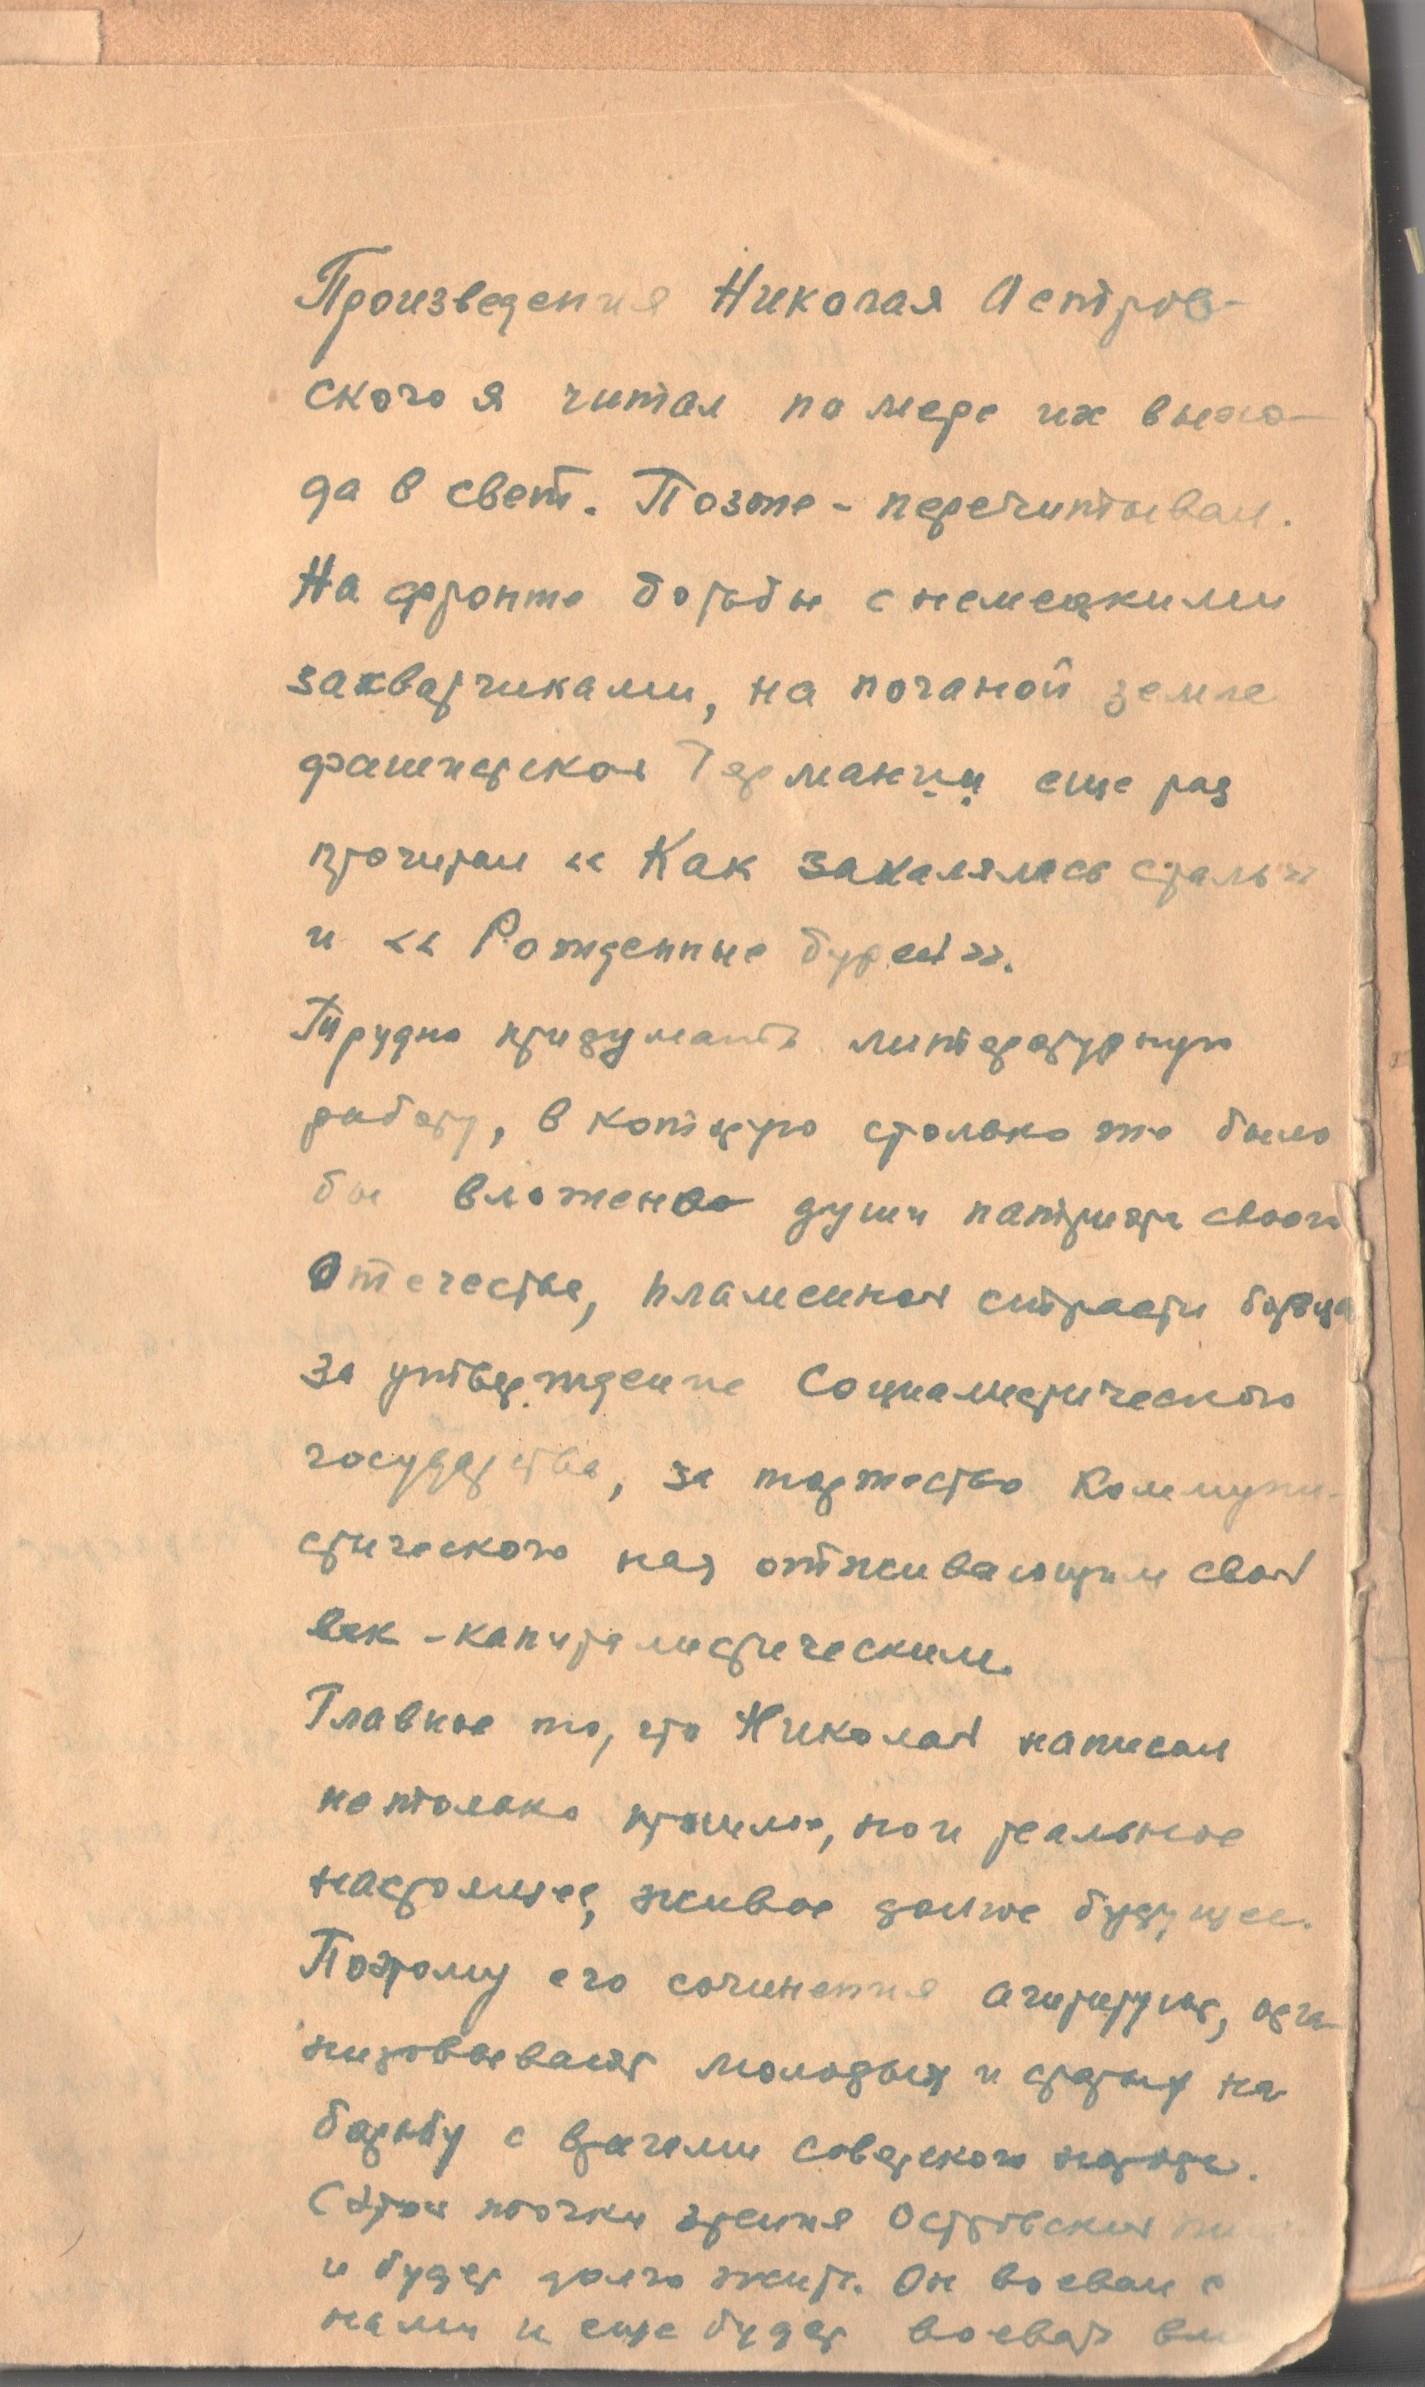 Произведения Николая Астров-
ского я читал по мере их выхо-
да в свет. Позже - перечитывал.
На фронте борьбы с немецкими
захватчиками, на поганой земле
фашистской Германии еще раз
прочитал «Как закалялась сталь»
и «Рожденные бурей».
Трудно придумать литературную
работу, в которую столько же было
бы вложено души патриота своего
Отечества, пламенной страсти борца
за утверждение Социалистического
государства, за торжество Коммуни-
стического над отживающим свой
век - капиталистическим.
Главное то, что Николай написал
не только прошлое, но и реальное
настоящее, живое даже будущее.
Поэтому его сочинения агитируют, орга-
низовывают молодых и старых на
борьбу с врагами советского народа.
С этой точки зрения Островский
и будет долго жить. Он воевал с
нами и еще будет воевать